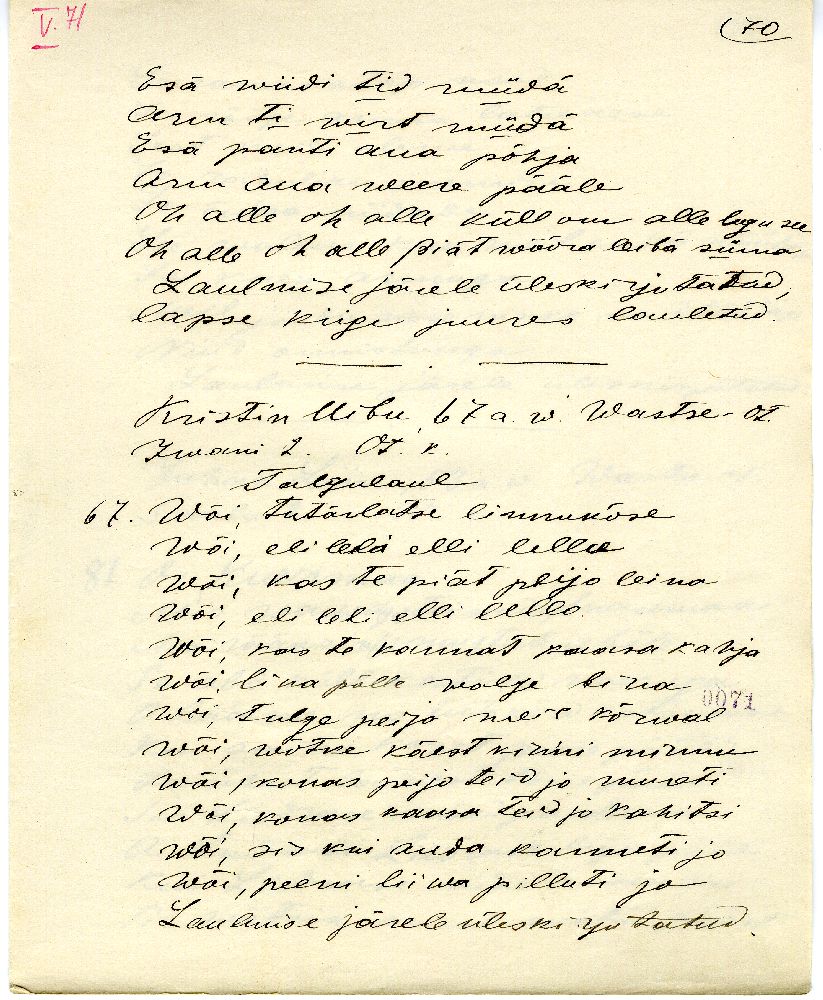 V. 71
70
Esä wiidi tid müüdä
Arm ti wirt müüdä
Esä panti aua põhja
Arm aua weere pääle
Oh alle oh alle küll om alle lugu see
Oh alle oh alle piät wõõra leibä süüma
Laulmise järele üleskirjutatud,
lapse kiige juures lauletud.
Kristin Uibu, 67 a. w. Wastse-Ot.
Iwani t. Ot. k.
Talgulaul
67. Wõi, tutärlatse linnukõse
Wõi, eli lelä elli lella
Wõi, kas te piät peijo leina
Wõi, eli leli elli lello
Wõi, kas te kannat kaasa kahja
Wõi, lina pälle walge
Wõi, tulge peijo meil kõrwal
0071
Wõi, wõtke käest kinni minnu
Wõi, konas peijo teid jo murreti
Wõi, konas kaasa teid jo kahitsi
Wõi, sis kui auda kanneti jo
Wõi, peeni liiwa pilluti jo
Laulmise järele üleskirjutatud.